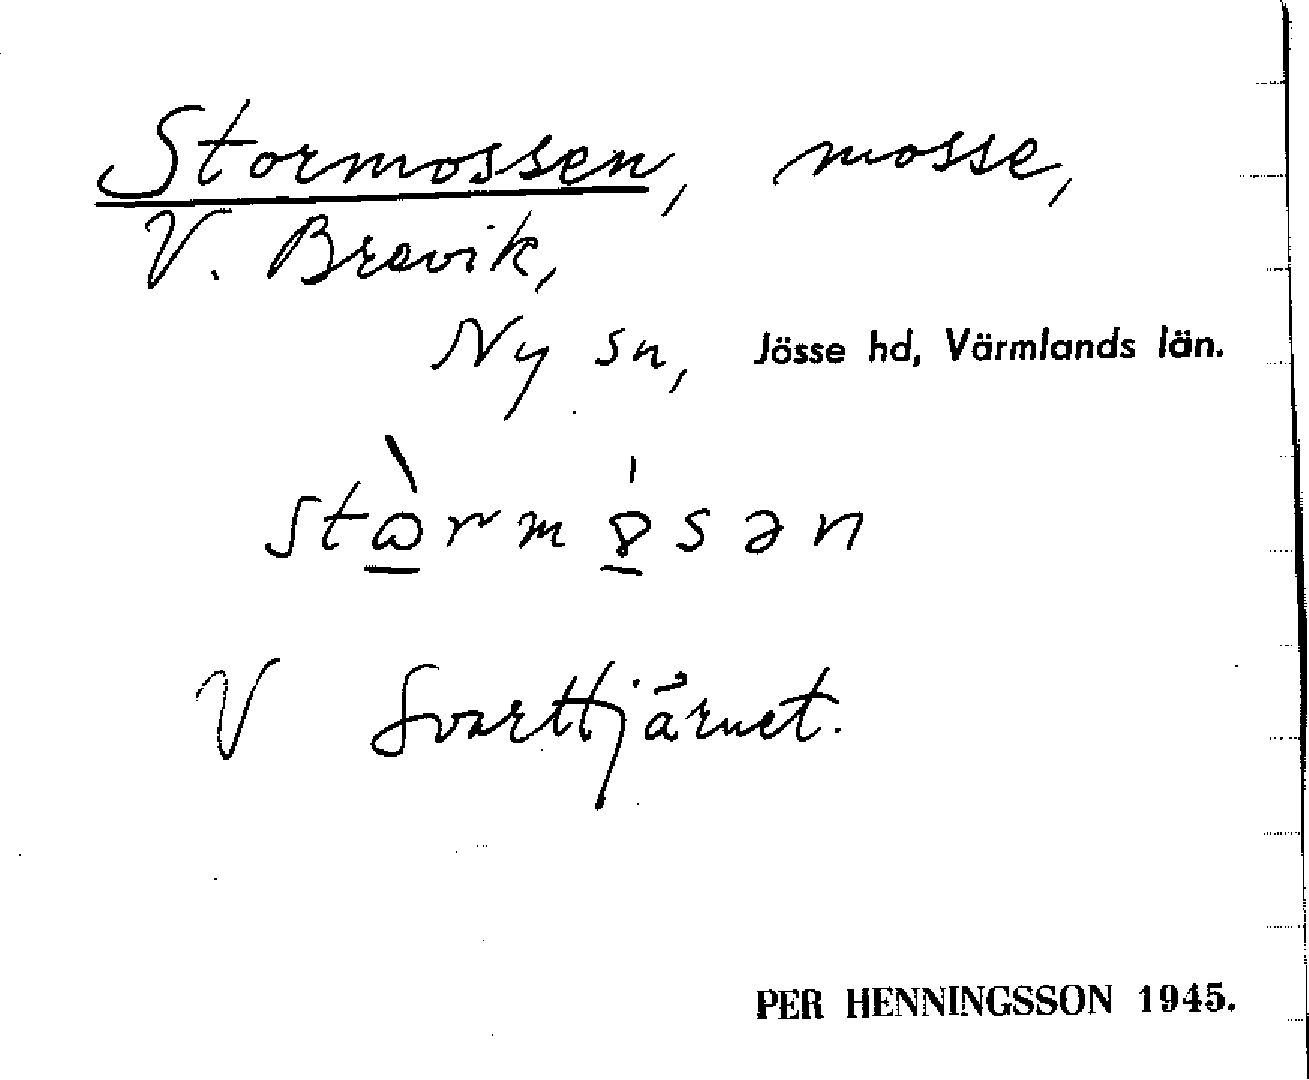 Stormossen, mosse,
V. Bravik,
Ny sn, Jösse hd, Värmlands län.
stɷ̠̀rmꝋ̠́sən
V Svarttjärnet.
PER HENNINGSSON 1945.